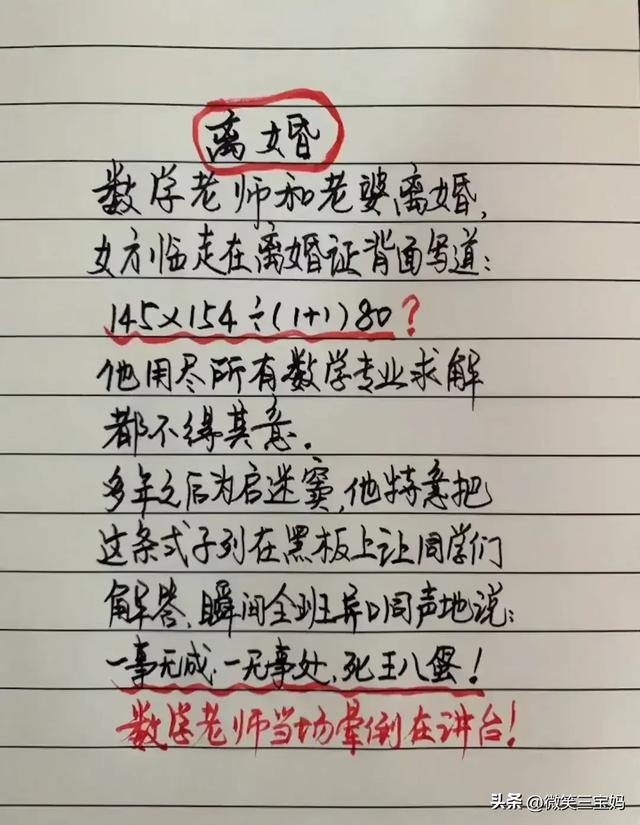 离婚
数学老师和老婆离婚,
女方临走在离婚证背面写道:
145×154÷(1+1)80?
他用尽所有数学专业求解
都不得其意.
多年之后为启迷窦,他特意把
这条式子列在黑板上让同学们
解答,瞬间全班异口同声地说:
一事无成.一无事处,死王八蛋!
数学老师当场晕倒在讲台!
头条 @微笑三宝妈